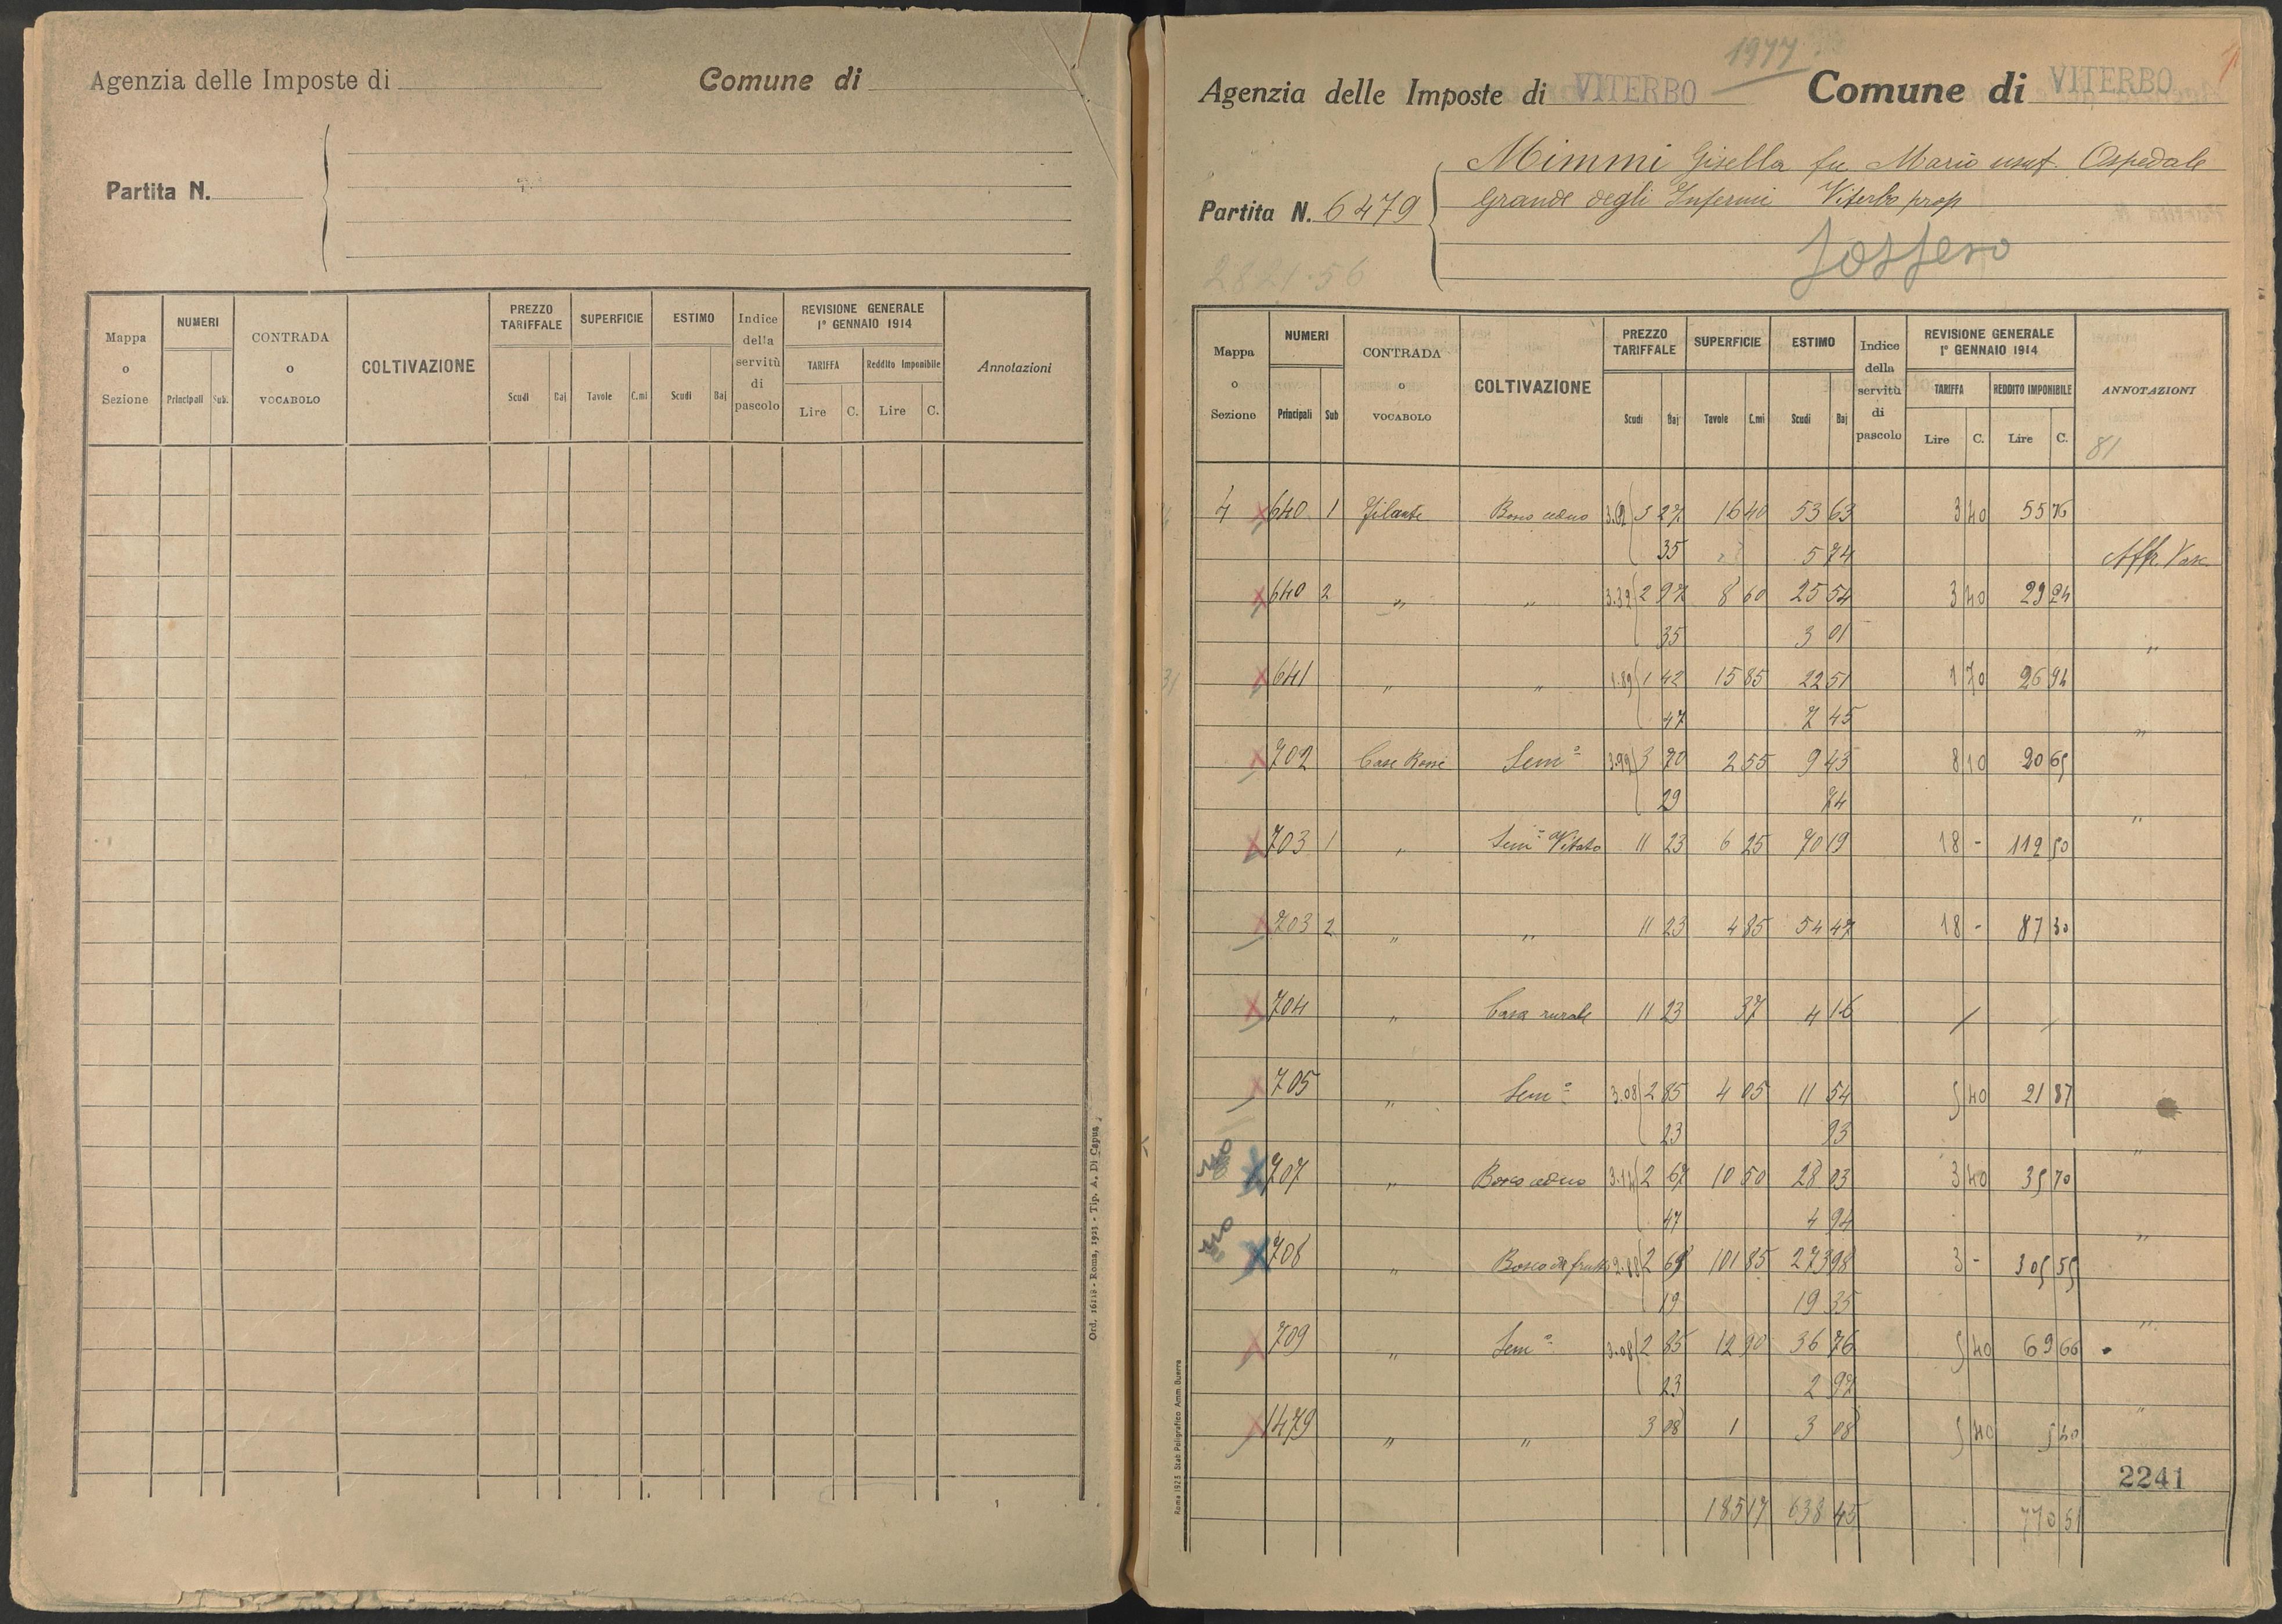 Agenzia delle Imposte di Comune di
Partita N.
Mappa o Sezione NUMERI Principali Sub. CONTRADA o VOCABOLO COLTIVAZIONE PREZZO TARIFFALE Scudi Baj SUPERFICIE Tavole C.mi ESTIMO Scudi Baj Indice della servitù di pascolo REVISIONE GENERALE 1° GENNAIO 1914 TARIFFA Lire C. Reddito Imponibile Lire C. Annotazioni
Ord. 16118 - Roma, 1923 - Tip. A. Di Capua
1977
Agenzia delle Imposte di VITERBO Comune di VITERBO
Mimmi Gisella fu Mario usuf. Ospedale
Partita N. 6479 Grande degli Infermi Viterbo prop
Sospeso
2821.56
Mappa o Sezione NUMERI Principali Sub CONTRADA o VOCABOLO COLTIVAZIONE PREZZO TARIFFALE Scudi Baj SUPERFICIE Tavole C.mi ESTIMO Scudi Baj Indice della servitù di pascolo REVISIONE GENERALE 1° GENNAIO 1914 TARIFFA Lire C. REDDITO IMPONIBILE Lire C. ANNOTAZIONI
81
4 640 1 Filante Bosco ceduo 3.62 3 27 16 40 53 63 3 40 55 76
35 5 74 Affr. Vasc.
640 2 " " 3.32 2 97 8 60 25 54 3 40 29 24
35 3 01 "
641 " " 1.89 1 42 15 85 22 51 1 70 26 94
47 7 45 "
702 Case Rosse Sem.o 3.99 3 70 2 55 9 43 8 10 20 65
29 74 "
703 1 " Sem.o Vitato 11 23 6 25 70 19 18 - 112 50
703 2 " " 11 23 4 85 54 47 18 - 87 30
704 " Casa rurale 11 23 37 4 16 / /
705 " Sem.o 3.08 2 85 4 05 11 54 5 40 21 87
23 93 "
707 " Bosco ceduo 3.14 2 67 10 50 28 03 3 40 35 70
47 4 94 "
708 " Bosco da frutto 2.88 2 69 101 85 273 98 3 - 305 55
19 19 35 "
709 " Sem.o 3.08 2 85 12 90 36 76 5 40 69 66
23 2 97 "
1479 " " 3 08 1 3 08 5 40 5 40
2241
185 17 638 45 770 51
Roma 1923 Stab Poligrafico Amm. Guerra